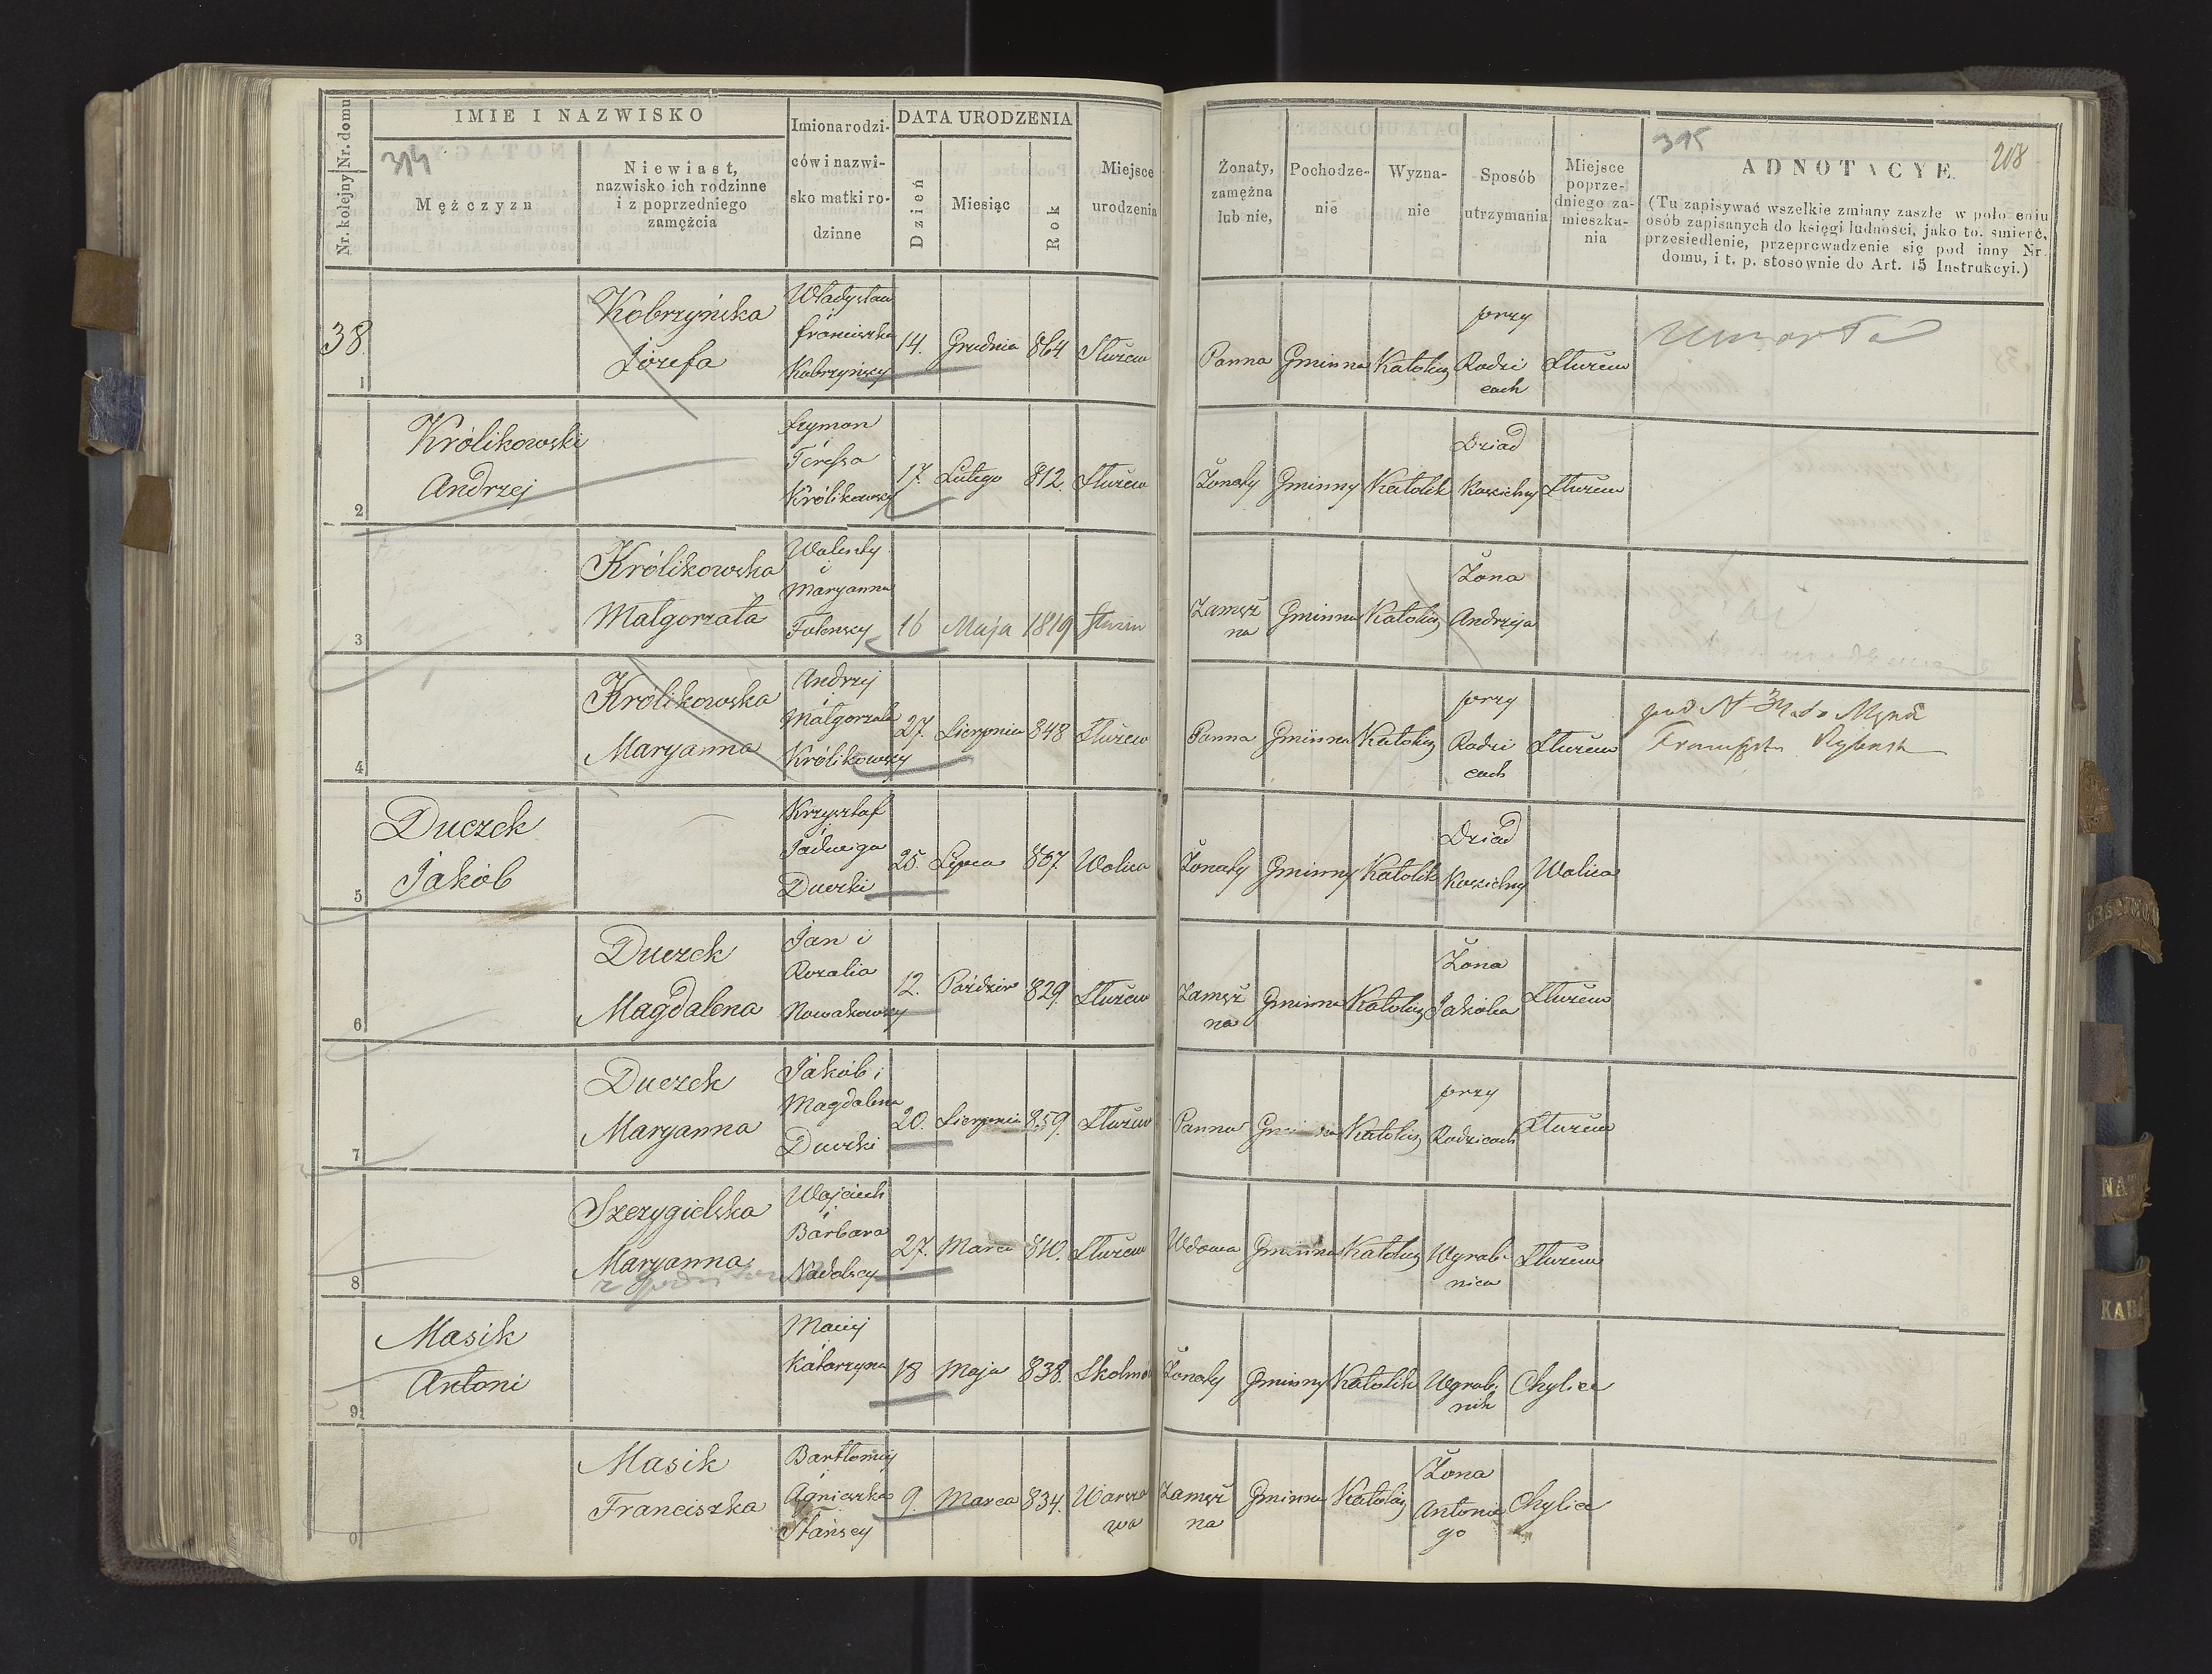 Nr. domu
Nr. kolejny
IMIE I NAZWISKO
394
Mężczyzn
Niewiast,
nazwisko ich rodzinne
i z poprzedniego
zamężcia
Imiona rodzi-
ców i nazwi-
sko matki ro-
dzinne
DATA URODZENIA
Dzień
Miesiąc
Rok
Miejsce
urodzenia
Żonaty,
zamężna
lub nie,
Pochodze-
nie
Wyzna-
nie
Sposób
utrzymania
Miejsce
poprze-
dniego za-
mieszka-
nia
395
208
ADNOTACYE
(Tu zapisywać wszelkie zmiany zaszłe w położeniu
osób zapisanych do księgi ludności, jako to. śmierć,
przesiedlenie, przeprowadzenie się pod inny Nr.
domu, i t. p. stosownie do Art. 15 Instrukcyi.)
38
1
Kobrzyńska
Józefa
Władysław
i
Franciszka
Kobrzyńscy
14. Grudnia 864 Służew
Panna Gminna Katolicz
przy
Rodzi
cach
Służew
Umarła
2
Królikowski
Andrzej
Szymon
i
Teressa
Królikowscy
17. Lutego 812. Służew
Żonaty Gminny Katolik
Dziad
Kościelny
Służew
3
Królikowska
Małgorzata
Walenty
i
Maryanna
16 Maja 1819
Zamęż
na
Gminna Katolicz
Żona
Andrzeja
4
Królikowska
Maryanna
Andrzej
i
Małgorzata
Królikowscy
27. Sierpnia 848 Służew
Panna Gminna Katolicz
przy
Rodzi
cach
Służew
pod N 34
5
Duczek
Jakób
Krzysztof
i
Jadwiga
Duczki
25. Lipca 807. Wolica
Żonaty Gminny Katolik
Dziad
Kościelny
Wolica
6
Duczek
Magdalena
Jan i
Rozalia
Nowakowscy
12. Paździer 829. Służew
Zamęż
na
Gminna Katolicz
Żona
Jakóba
Służew
7
Duczek
Maryanna
Jakób i
Magdalena
Duczki
20. Sierpnia 859. Służew
Panna Katolicz
przy
Rodzicach
Służew
8
Szczygielska
Maryanna
Wojciech
i
Barbara
Nadolscy
27. Marca 840. Służew
Wdowa Gminna Katolicz
Wyrob
nica
Służew
9
Masik
Antoni
Maciej
i
Katarzyna
18 Maja 838. Skolimów
Żonaty Gminny Katolik
Wyrob.
nik
Chylice
0
Masik
Franciszka
Bartłomiej
i
Agnieszka
Stańscy
9. Marca 834. Warsza
wa
Zamęż
na
Gminna Katolicz
Żona
Antonie
go
Chylice